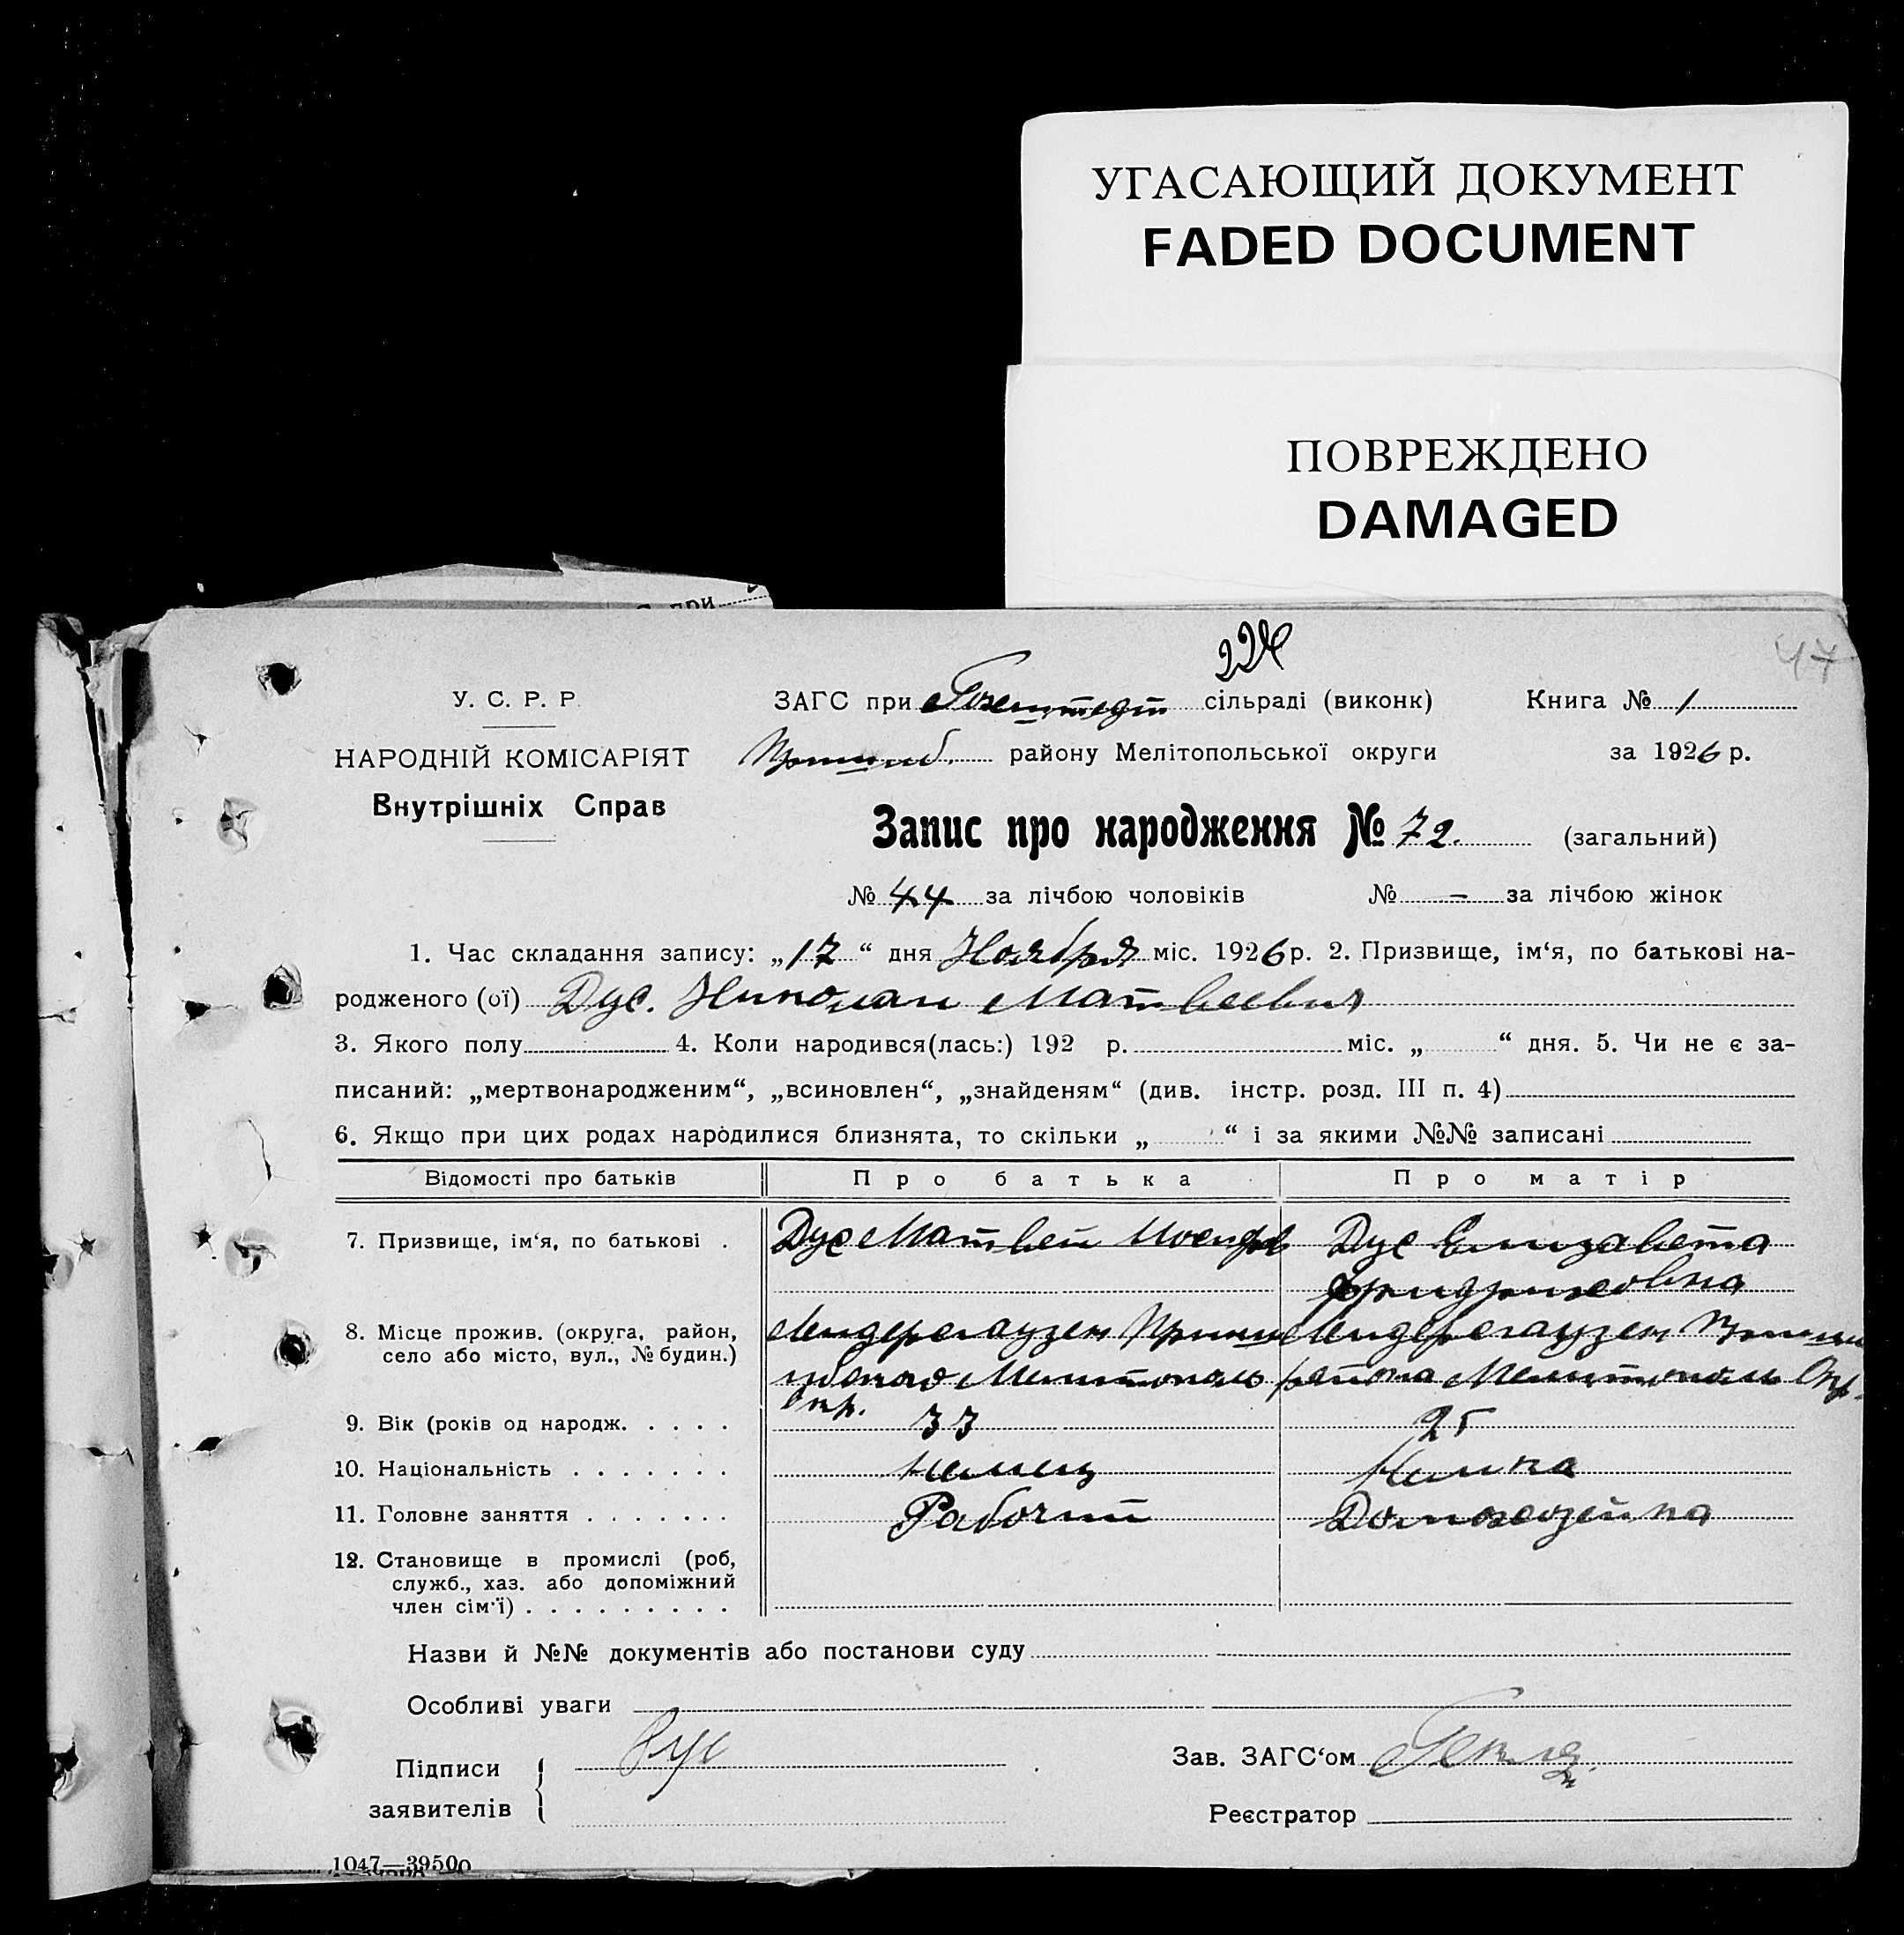 УГАСАЮЩИЙ ДОКУМЕНТ
FADED DOCUMENT
ПОВРЕЖДЕНО
DAMAGED
при
224
47
У. С. Р. Р.
ЗАГС при сільраді (виконк)
Книга № 1
НАРОДНІЙ КОМІСАРІЯТ
Пришиб. району Мелітопольської округи
за 1926 р.
Внутрішніх Справ
Запис про народження № 72. (загальний)
№ 44 за лічбою чоловіків № — за лічбою жінок
1. Час складання запису: „17“ дня Ноября міс. 1926 р. 2. Призвище, ім‘я, по батькові на-
родженого (ої) Дус. Николай Матвеевич
3. Якого полу 4. Коли народився(лась:) 192 р. міс. „ “ дня. 5. Чи не є за-
писаний: „мертвонародженим“, „всиновлен“, „знайденям“ (див. інстр. розд. III п. 4)
6. Якщо при цих родах народилися близнята, то скільки „ “ і за якими №№ записані
Відомості про батьків Про батька Про матір
7. Призвище, ім‘я, по батькові . Дус Матвей Иосифов Дус Елизавета
Фридриховна
8. Місце прожив. (округа, район,
село або місто, вул., № будин.)
Лейдерсгаузен Приши Лейдерсгаузен Приши
бского Мелитополь района Мелитополь Окр.
Окр.
9. Вік (років од народж. . . . . 33 25
10. Національність . . . . . . . Немец Немка
11. Головне заняття . . . . . . . Рабочий Домохозяйка
12. Становище в промислі (роб,
служб., хаз. або допоміжний
член сім‘ї) . . . . . . . . .
Назви й №№ документів або постанови суду
Особливі уваги
Підписи
заявителів
Дус
Зав. ЗАГС‘ом
Реєстратор
1047—39500